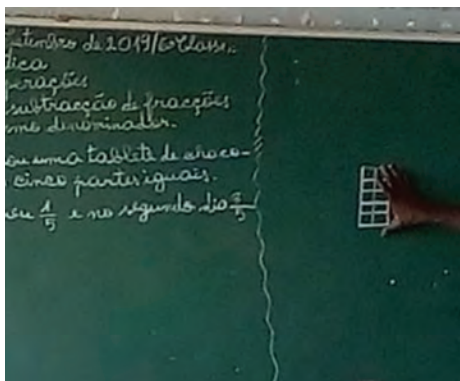 etembro de 2019/6ª Classe
dica
perações
subtracção de fracções
smo denominador.
ou uma tablete de choco-
cinco partes iguais.
ou 1/5 e no segundo dia 2/5